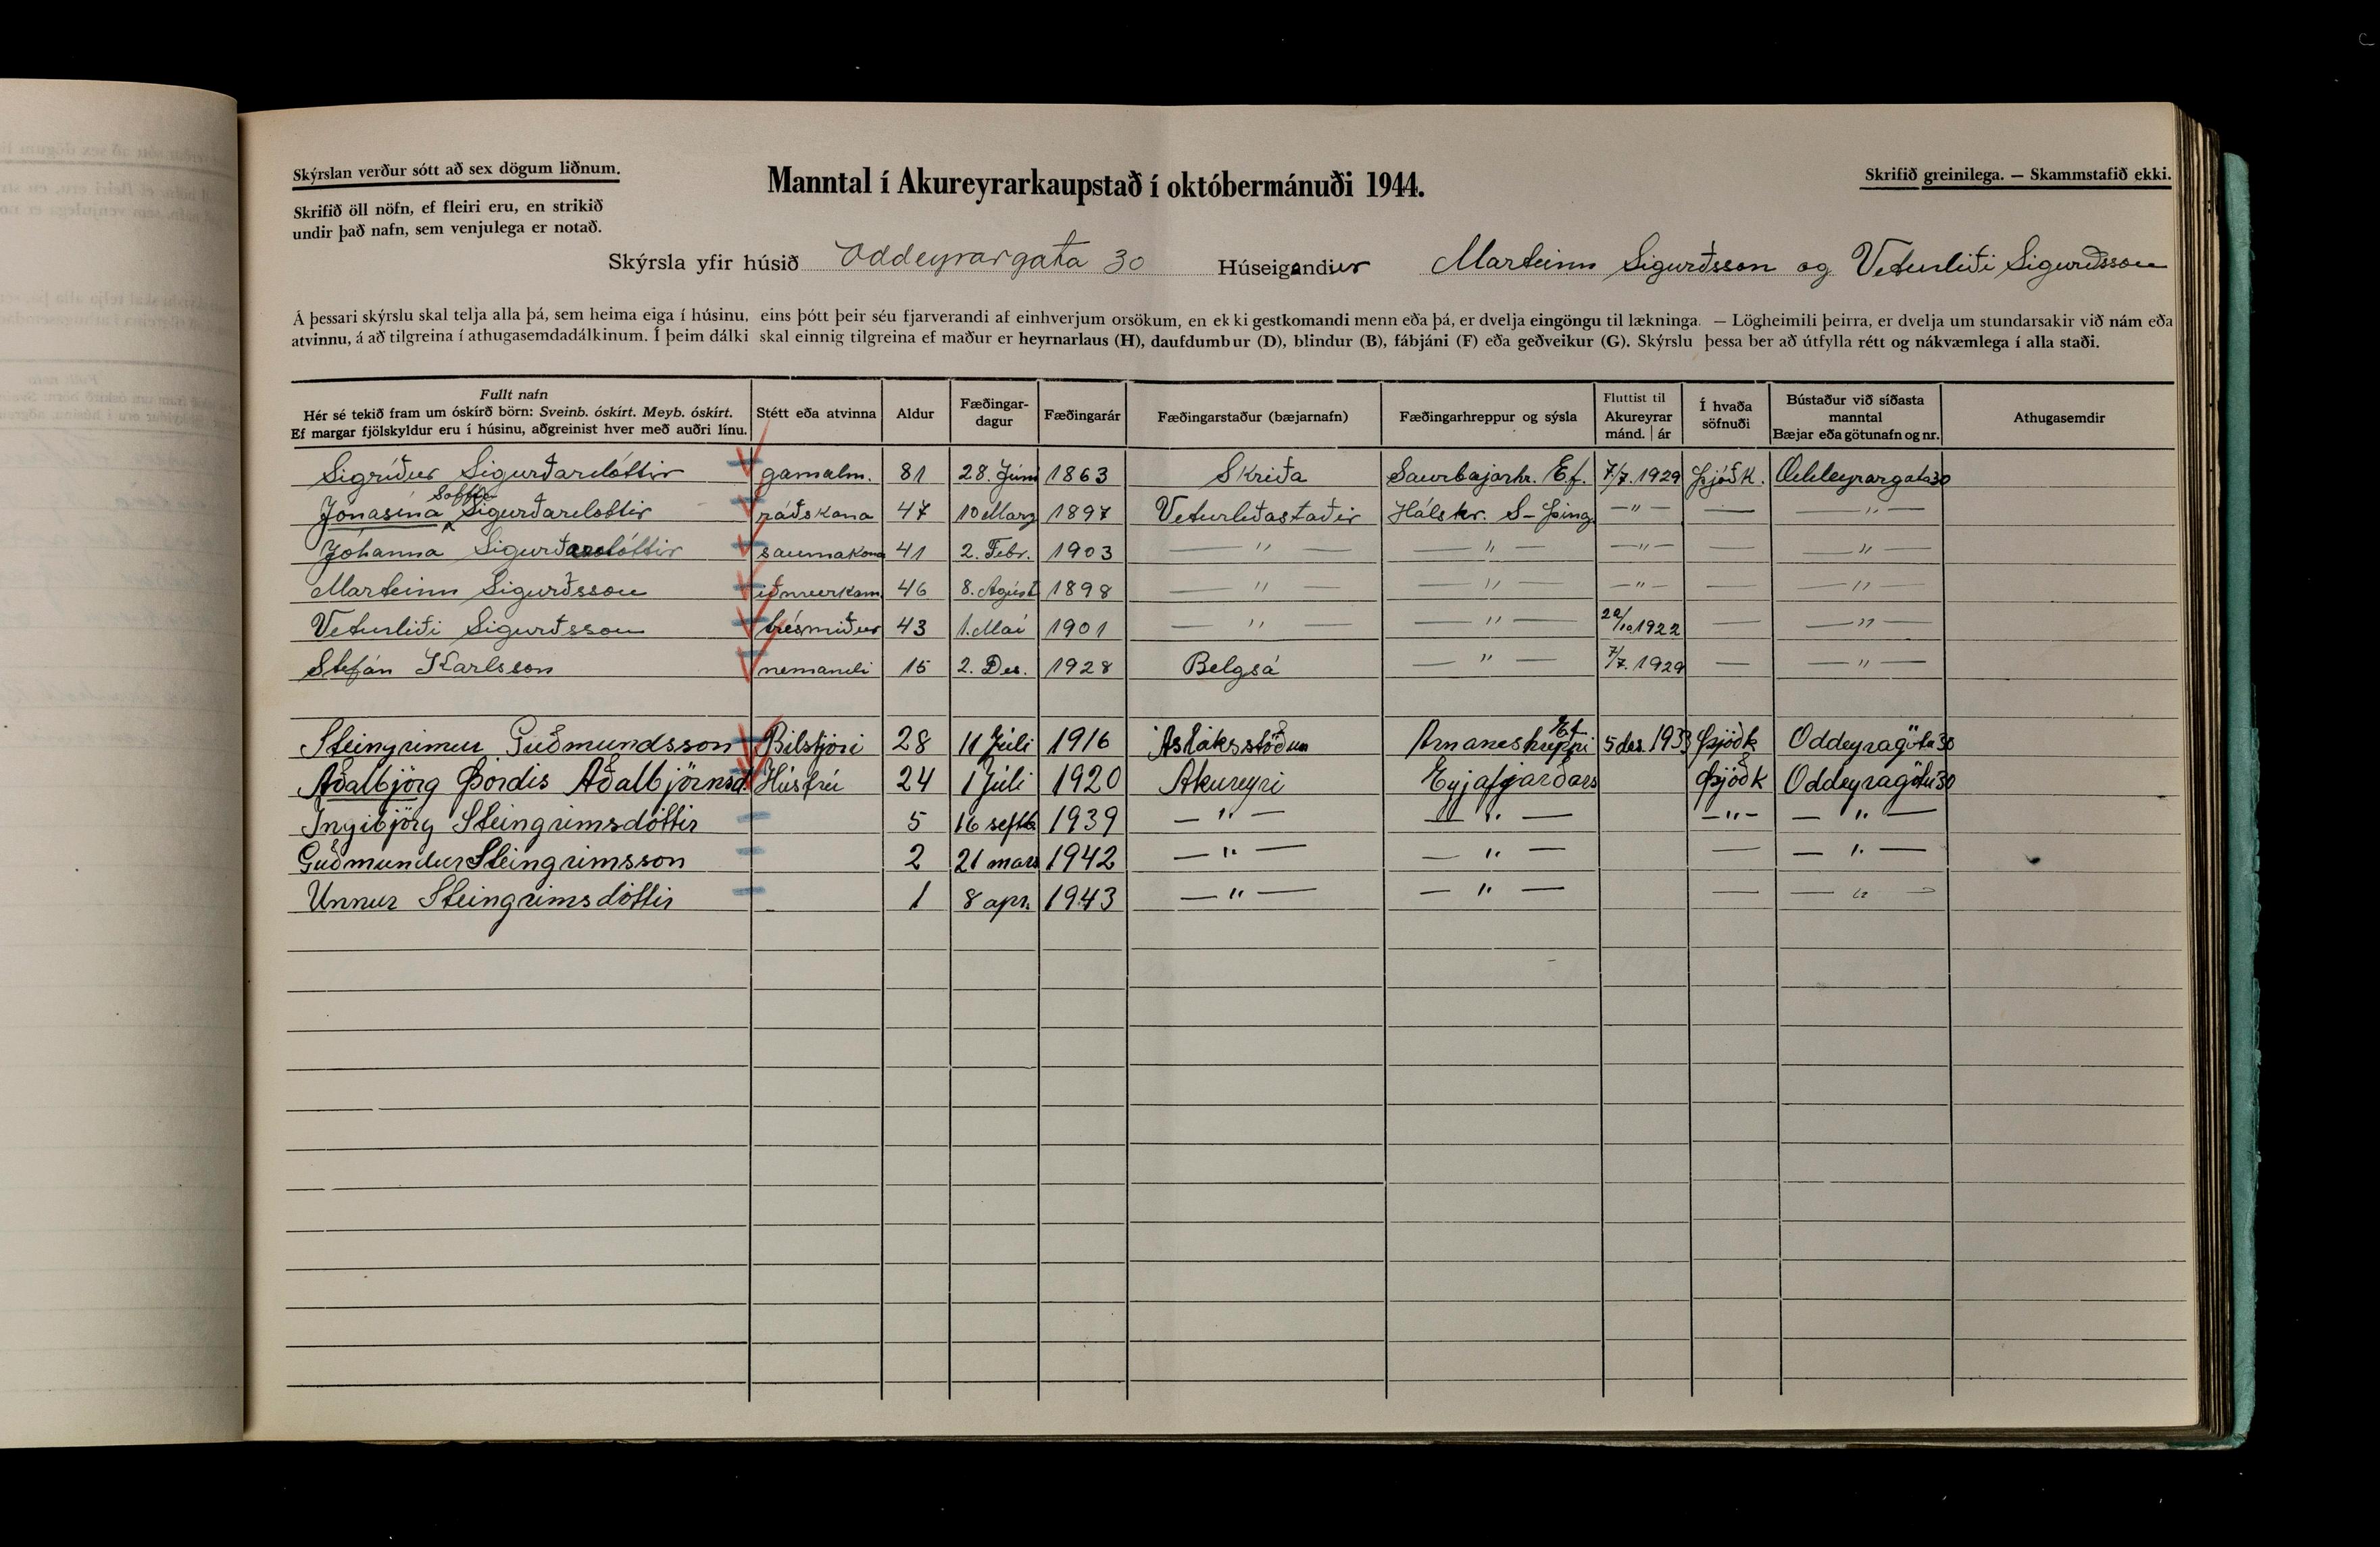 Skýrslan verður sótt að sex dögum liðnum.
Skrifið öll nöfn, ef fleiri eru, en strikið
undir það nafn, sem venjulega er notað.
Manntal í Akureyrarkaupstað í októbermánuði 1944.
Skrifið greinilega. — Skammstafið ekki.
Skýrsla yfir húsið Oddeyrargata 30 Húseigandiur Marteinn Sigurðsson og Veturliði Sigurðsson
Á þessari skýrslu skal telja alla þá, sem heima eiga í húsinu, eins þótt þeir séu fjarverandi af einhverjum orsökum, en ekki gestkomandi menn eða þá, er dvelja eingöngu til lækninga. — Lögheimili þeirra, er dvelja um stundarsakir við nám eða
atvinnu, á að tilgreina í athugasemdadálkinum. Í þeim dálki skal einnig tilgreina ef maður er heyrnarlaus (H), daufdumbur (D), blindur (B), fábjáni (F) eða geðveikur (G). Skýrslu þessa ber að útfylla rétt og nákvæmlega í alla staði.
Fullt nafn
Hér sé tekið fram um óskírð börn: Sveinb. óskírt. Meyb. óskírt.
Ef margar fjölskyldur eru í húsinu, aðgreinist hver með auðri línu.
Stétt eða atvinna
Aldur
Fæðingar-
dagur
Fæðingarár
Fæðingarstaður (bæjarnafn)
Fæðingarhreppur og sýsla
Fluttist til
Akureyrar
mánd. | ár
Í hvaða
söfnuði
Bústaður við síðasta
manntal
Bæjar eða götunafn og nr.
Athugasemdir
Sigríður Sigurðardóttir gamalm. 81 28. Júní 1863 Skriða Saurbajarhr. Ef. 7/7. 1929 Þjóðk. Oddeyrargata 30
Soffía
Jónasína Sigurðardóttir ráðskona 47 10 Marz 1897 Veturliðastaðir Hálshr. S-Þing. — " — — — " —
Jóhanna Sigurðardóttir saumakona 41 2. Febr. 1903 — " — — " — — " — — — " —
Marteinn Sigurðsson iðnverkam. 46 8. Ágúst 1898 — " — — " — — " — — — " —
Veturliði Sigurðsson trésmiður 43 1. Maí 1901 — " — — " — 20/10 1922 — — " —
Stefán Karlsson nemandi 15 2. Des. 1928 Belgsá — " — 7/7. 1929 — — " —
Steingrímur Guðmundsson Bílstjóri 28 11 Júlí 1916 Ásláksstöðum Arnaneshreppi Ef. 5 des. 1933 Þjóðk Oddeyragötu 30
Aðalbjörg Þórdís Aðalbjörnsd. Húsfrú 24 1 Júlí 1920 Akureyri Eyjafjarðars Þjóðk Oddeyragötu 30
Ingibjörg Steingrímsdóttir 5 16 septb. 1939 — " — — " — — " — — " —
Guðmundur Steingrímsson 2 21 mars 1942 — " — — " — — — " —
Unnur Steingrímsdóttir 1 8 apr. 1943 — " — — " — — — " —